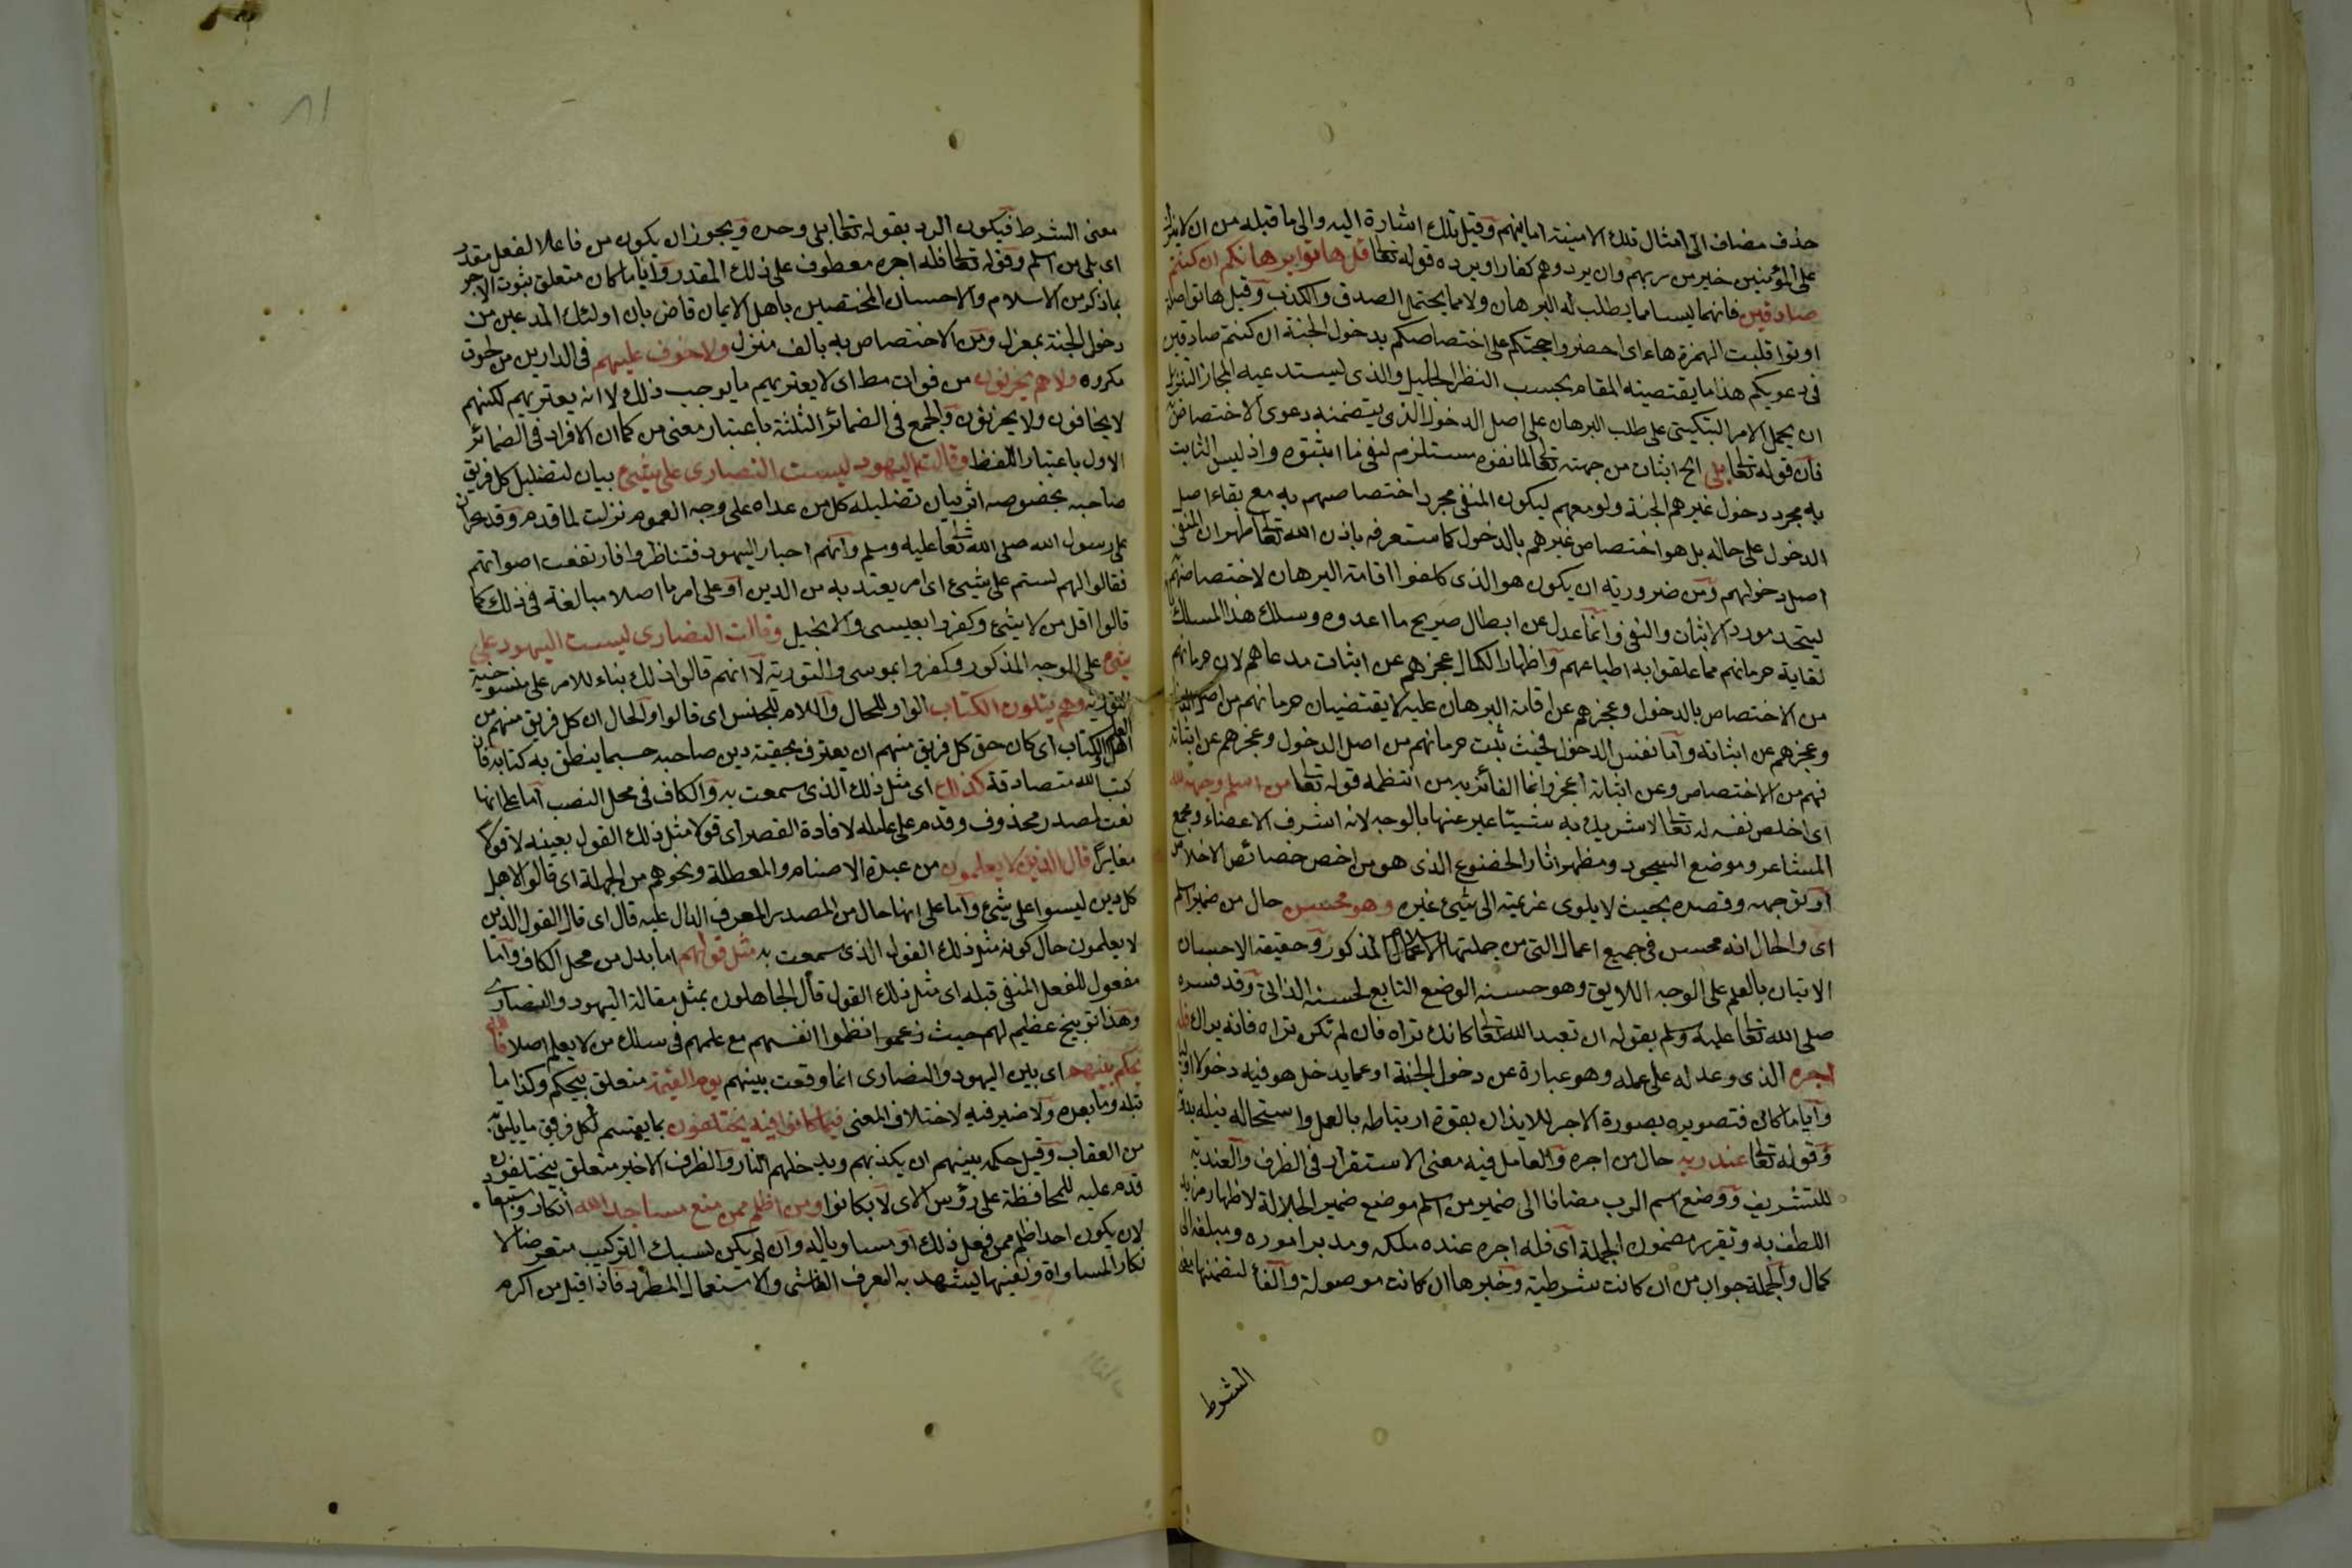 حذف مضاف الى امثال تلك الامنية امانيهم وقيل تلك اشارة اليه والى ما قبله من ان لا ينزل
على المؤمنين خير من ربهم وان يردوهم كفارا ويرده قوله تعالى قل هاتوا برهانكم ان كنتم
صادقين فانهما ليسا مما يطلب له البرهان ولا مما يحتمل الصدق والكذب وقيل هاتوا اصله
اوتوا قلبت الهمزة هاء اى احضروا حجتكم على اختصاصكم بدخول الجنة ان كنتم صادقين
فى دعويكم هذا ما يقتضيه المقام بحسب النظر الجليل والذى يستدعيه المجاز التنزيل
ان يحمل الامر التبكيتى على طلب البرهان على اصل الدخول الذى يتضمنه دعوى الاختصاص به
فان قوله تعالى بلى الخ اثبات من جهته تعالى لما نفوه مستلزم لنفى ما اثبتوه واذ ليس الثابت
به مجرد دخول غيرهم الجنة ولو معهم ليكون المنفى مجرد اختصاصهم به مع بقاء اصل
الدخول على حاله بل هو اختصاص غيرهم بالدخول كما ستعرفه باذن الله تعالى ظهر ان المنفى
اصل دخولهم ومن ضرورته ان يكون هو الذى كلفوا اقامة البرهان لا اختصاصهم به
ليتحد مورد الاثبات والنفى وانما عدل عن ابطال صريح ما ادعوه وسلك هذا المسلك
لغاية حرمانهم مما علقوا به اطماعهم واظهارا لكمال عجزهم عن اثبات مدعاهم لان حرمانهم
من الاختصاص بالدخول وعجزهم عن اقامة البرهان عليه لا يقتضيان حرمانهم من اصل الدخول
وعجزهم عن اثباته واما نفس الدخول فحيث ثبت حرمانهم من اصل الدخول وعجزهم عن اثباته
فهم من الاختصاص وعن اثباته اعجز وانما الفائز به من انتظمه قوله تعالى من اسلم وجهه لله
اى اخلص نفسه له تعالى لا يشرك به شيئا عبر عنها بالوجه لانه اشرف الاعضاء ومجمع
المشاعر وموضع السجود ومظهر اثار الخضوع الذى هو من اخص خصائص الاخلاص
او توجهه وقصده بحيث لا يلوى عزيمته الى شيئ غيره وهو محسن حال من ضمير اسلم
اى والحال انه محسن فى جميع اعماله التى من جملتها الاسلام المذكور وحقيقة الاحسان
الاتيان بالعمل على الوجه اللايق وهو حسنه الوضع التابع لحسنه الذاتى وقد فسره
صلى الله تعالى عليه وسلم بقوله ان تعبد الله تعالى كانك تراه فان لم تكن تراه فانه يراك فله
اجره الذى وعد له على عمله وهو عبارة عن دخول الجنة او عما يدخل هو فيه دخولا اوليا
وايا ما كان فتصويره بصورة الاجر للايذان بقوة ارتباطه بالعمل واستحالة نيله بدونه
وقوله تعالى عند ربه حال من اجره والعامل فيه معنى الاستقرار فى الظرف والعندية
للتشريف ووضع اسم الرب مضافا الى ضمير من اسلم موضع ضمير الجلالة لاظهار مزيد
اللطف به وتقرير مضمون الجملة اى فله اجره عنده ملكه ومدبر اموره ومبلغه الى
كمال والجملة جواب من ان كانت شرطية وخبرها ان كانت موصولة والفأ لتضمنها معنى
الشرط
معنى الشرط فيكون الرد بقوله تعالى بلى وحده ويجوز ان يكون من فاعلا لفعل مقدر
اى بلى من اسلم وقوله تعالى فله اجره معطوف على ذلك المقدر وايا ما كان متعلق ثبوت الاجر
بما ذكر من الاسلام والاحسان المختصين باهل الايمان قاض بان اولئك المدعين من
دخول الجنة بمعزل ومن الاختصاص به بالف منزل ولا خوف عليهم فى الدارين من لحوق
مكروه ولا هم يحزنون من فوات مط اى لا يعتريهم ما يوجب ذلك لا انه يعتريهم لكنهم
لا يخافون ولا يحزنون والجمع فى الضمائر الثلثة باعتبار معنى من كما ان الافراد فى الضمائر
الاول باعتبار اللفظ وقالت اليهود ليست النصارى على شيئ بيان لتضليل كل فريق
صاحبه بخصوصه اثر بيان تضليله كل من عداه على وجه العموم نزلت لما قدم وفد نجران
على رسول الله صلى الله تعالى عليه وسلم واتهم احبار اليهود فتناظروا فارتفعت اصواتهم
فقالوا لهم لستم على شيئ اى امر يعتد به من الدين او على امر ما اصلا مبالغة فى ذلك كما
قالوا اقل من لا شيئ وكفروا بعيسى والانجيل وقالت النصارى ليست اليهود على
شيئ على الوجه المذكور وكفروا بموسى والتورية لا انهم قالوا ذلك بناء للامر على منسوخية
التورية وهم يتلون الكتاب الواو للحال واللام للجنس اى قالوا والحال ان كل فريق منهم من
اهل العلم والكتاب اى كان حق كل فريق منهم ان يعترف بحقية دين صاحبه حسبما ينطق به كتابه فان
كتب الله متصادقة كذلك اى مثل ذلك الذى سمعت به والكاف فى محل النصب اما على انها
نعت لمصدر محذوف وقدم على عامله لافادة القصر اى قولا مثل ذلك القول بعينه لا قولا
مغايرا قال الذين لا يعلمون من عبدة الاصنام والمعطلة ونحوهم من الجهلة اى قالوا لاهل
كل دين ليسوا على شيئ واما على انها حال من المصدر المعرف الدال عليه قال اى قال القول الذين
لا يعلمون حال كونه مثل ذلك القول الذى سمعت به مثل قولهم اما بدل من محل الكاف واما
مفعول للفعل المنفى قبله اى مثل ذلك القول قال الجاهلون بمثل مقالة اليهود والنصارى
وهذا توبيخ عظيم لهم حيث زعموا نظموا انفسهم مع علمهم فى سلك من لا يعلم اصلا فالله
يحكم بينهم اى بين اليهود والنصارى انما وقعت بينهم يوم القيمة متعلق بيحكم وكذا ما
قبله وما بعده ولا ضير فيه لاختلاف المعنى فيما كانوا فيه يختلفون بما يقسم لكل فريق ما يليق به
من العقاب وقيل حكمه بينهم ان يكذبهم ويدخلهم النار والظرف الاخير متعلق بيختلفون
قدم عليه للمحافظة على رؤس الاى لا بكانوا ومن اظلم ممن منع مساجد الله انكار واستبعاد
لان يكون احد اظلم ممن فعل ذلك او مساويا له وان لم يكن سبك التركيب متعرضا لا
نكار المساواة ونفيها يشهد به العرف الفاشى والاستعمال المطرد فاذا قيل من اكرم